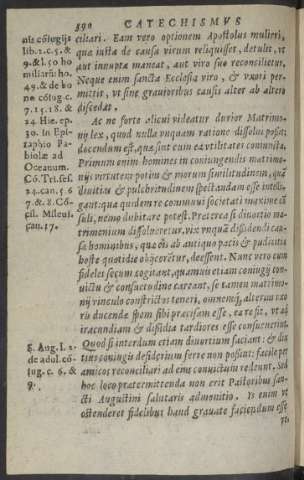 390 CATECHISMVS
nis cõiugijs
lib. 2. c. 5. &
9. & l. 50 ho
miliarũ: ho.
49. & de bo
ne cõiug. c.
7. 15. 18. &
24. Hie. ep.
30. In Epi-
taphio Pa-
biolæ ad
Oceanum.
Cõ. Tri. ses.
24. can. 5. 6
7. & 8. Cõ-
cil. Mileui.
can. 17.
ciliari. Eam vero optionem Apostolus mulieri,
quæ iusta de causa virum reliquisset, detulit, vt
aut innupta maneat, aut viro suo reconcilietur.
Neque enim sancta Ecclesia viro, & vxori per-
mittit, vt sine grauioribus causis alter ab altero
discedat.
Ac ne forte alicui videatur durior Matrimo-
nij lex, quod nulla vnquam ratione dissolui possit;
docendum est, quæ sint cum ea vtilitates coniunctæ.
Primum enim homines in coniungendis matrimo-
nijs virtutem potius & morum similitudinem, quã
diuitias & pulchritudinem spectandam esse intelli-
gant: qua quidem re communi societati maxime cõ
suli, nemo dubitare potest. Præterea si diuortio ma-
trimonium dissolueretur, vix vnquã dissidendi cau-
sæ hominibus, quæ eis ab antiquo pacis & pudicitiæ
hoste quotidie obijcerẽtur, deessent. Nunc vero cum
fideles secum cogitant, quamuis etiam coniugij con-
uictu & consuetudine careant, se tamen matrimo-
nij vinculo constrictos teneri, omnemq́; alterius vxo
ris ducendæ spem sibi præcisam esse, ea re fit, vt ad
iracundiam & dissidia tardiores esse consueuerint.
Quod si interdum etiam diuortium faciant: & diu
tius coniugis desiderium ferre non possint: facile per
amicos reconciliari ad eius conuictum redeunt. Sed
hoc loco prætermittenda non erit Pastoribus san-
cti Augustini salutaris admonitio. Is enim vt
ostenderet fidelibus haud grauate faciendum esse
S. Aug. l. 2.
de adul. cõ-
iug. c. 6. &
9.